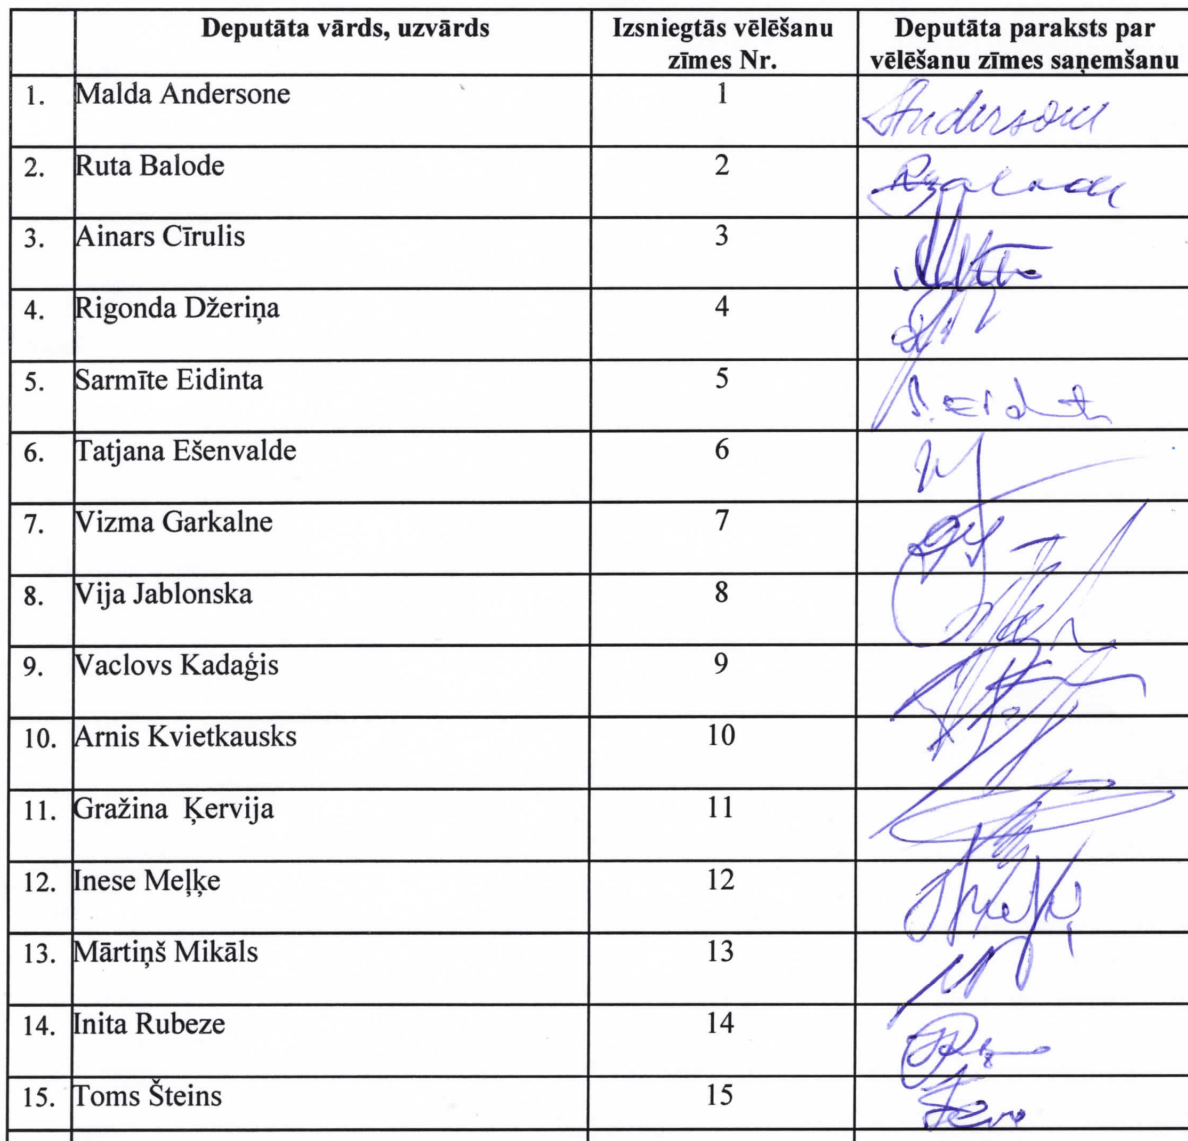 Deputāta vārds, uzvārds Izsniegtās vēlēšanu zīmes Nr. Deputāta paraksts par vēlēšanu zīmes saņemšanu
1. Malda Andersone 1 Andersone
2. Ruta Balode 2
3. Ainars Cīrulis 3
4. Rigonda Džeriņa 4
5. Sarmīte Eidinta 5
6. Tatjana Ešenvalde 6
7. Vizma Garkalne 7
8. Vija Jablonska 8
9. Vaclovs Kadaģis 9
10. Arnis Kvietkausks 10
11. Gražina Ķervija 11
12. Inese Meļķe 12
13. Mārtiņš Mikāls 13
14. Inita Rubeze 14
15. Toms Šteins 15